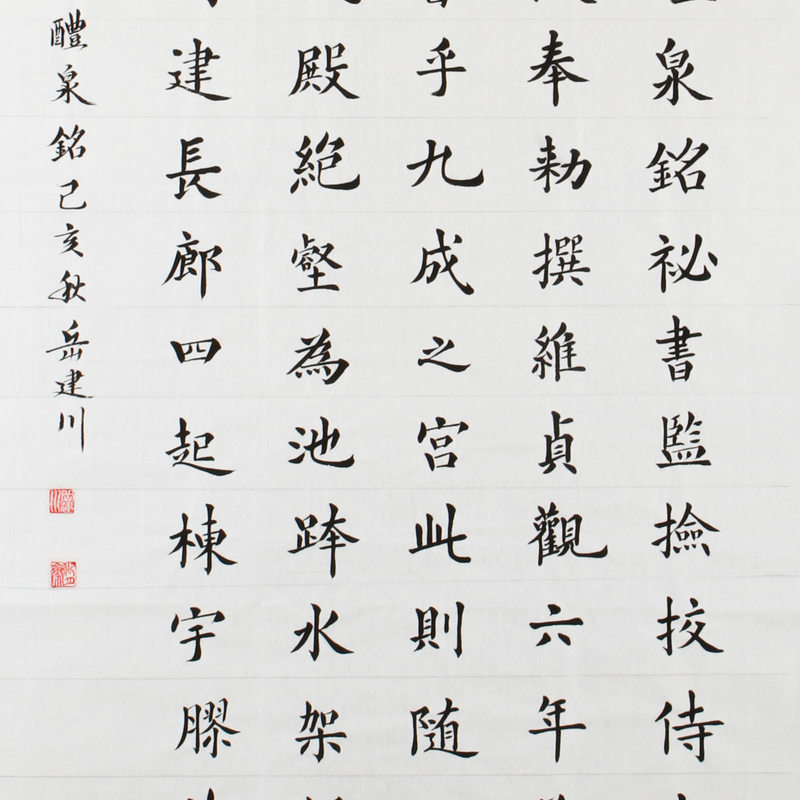 泉銘祕書監撿挍侍
奉勑撰維貞觀六年
乎九成之宮此則随
殿絕壑為池跨水架
建長廊四起棟宇膠
醴泉銘己亥秋岳建川